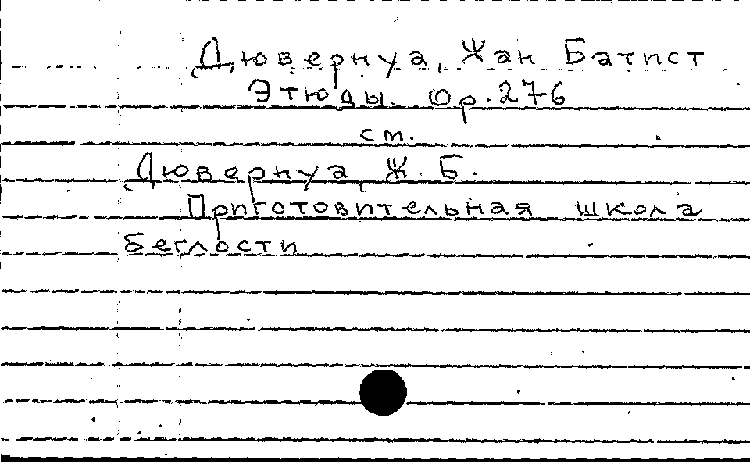 Дювернуа, Жан Батист
Этюды. Op. 276
см.
Дювернуа, Ж. Б.
Приготовительная школа
беглости